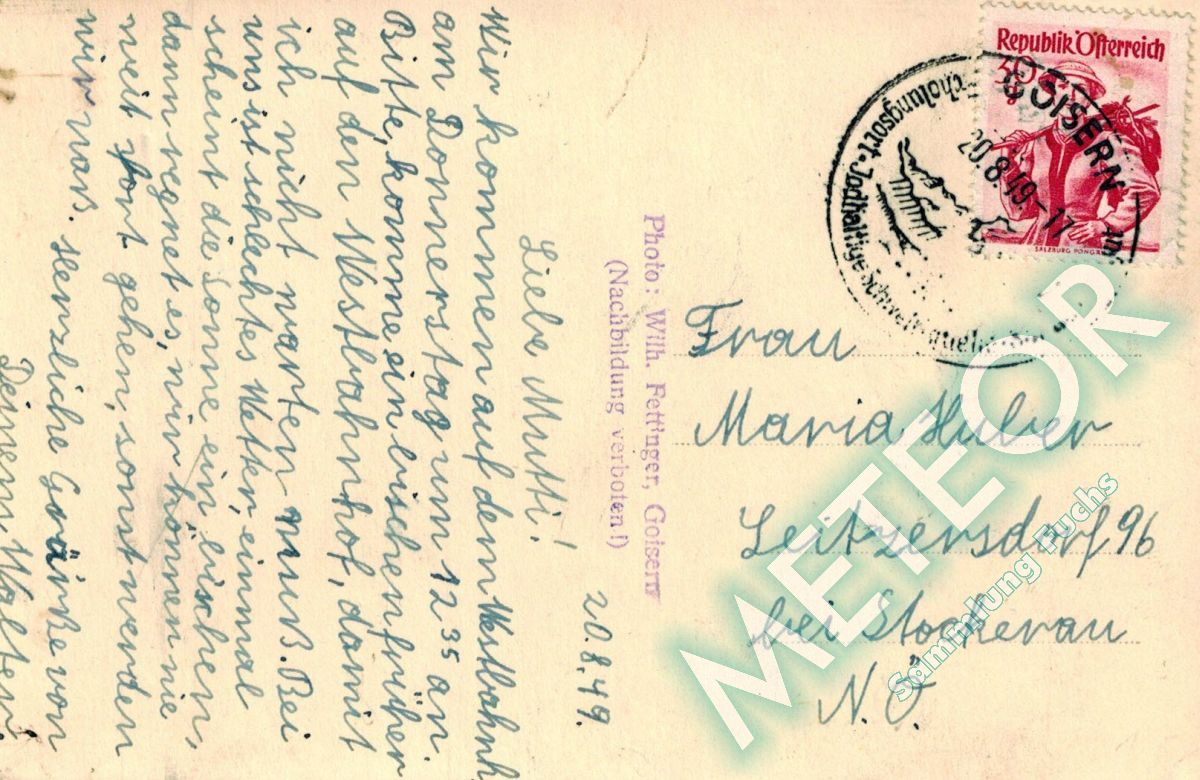 20.8.49.
Liebe Mutti!
Wir kommen auf dem Westbahnh
am Donnerstag um 12 35 an.
Bitte, komme ein bischen früher
auf den Westbahnhof, damit
ich nicht warten muß. Bei
uns ist schlechtes Wetter, einmal
scheint die Sonne ein bischen,
dann regnet es, wir können nie
weit fort gehen, sonst werden
wir nass. Herzliche Grüße von
Deinem Walter.
Photo: Wilh. Fettinger, Goisern
(Nachbildung verboten!)
Republik Österreich
SALZBURG PONGAU
GOISERN
20.8.49.-17
Erholungsort · Jodhaltige
Frau
Maria Huber
Leitzersdorf 96
bei Stockerau
N.Ö.
METEOR
Sammlung Fuchs